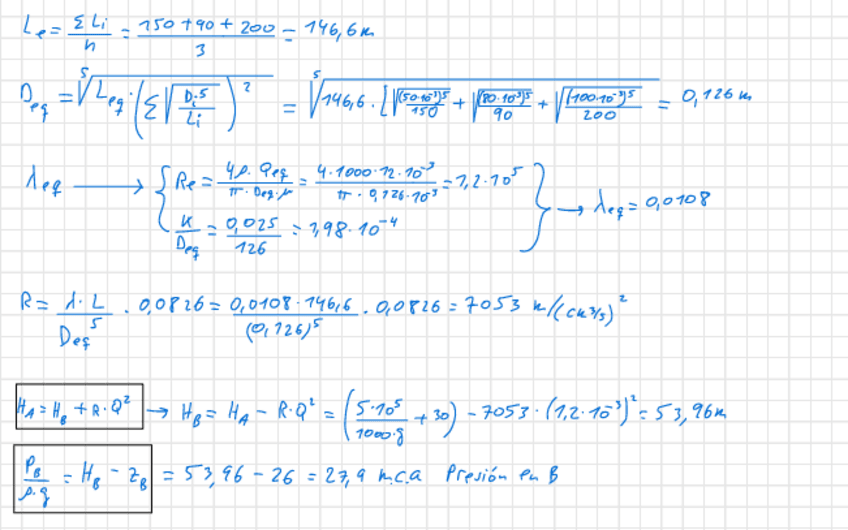 Le = Σ Li / n = (150 + 90 + 200) / 3 = 146,6 m
Deq = ⁵√(Leq · (Σ √(Di⁵ / Li))²) = ⁵√(146,6 · [√((50·10⁻³)⁵ / 150) + √((80·10⁻³)⁵ / 90) + √((100·10⁻³)⁵ / 200)) = 0,126 m
λeq → { Re = 4ρ·Qeq / (π·Deq·μ) = 4·1000·12·10⁻³ / (π·0,126·10⁻³) = 1,2·10⁵
K / Deq = 0,025 / 126 = 1,98·10⁻⁴ } → λeq = 0,0108
R = λ·L / Deq⁵ · 0,0826 = 0,0108·146,6 / (0,126)⁵ · 0,0826 = 7053 m/(cm³/s)²
HA = HB + R·Q² → HB = HA − R·Q² = (5·10⁵ / 1000·g + 30) − 7053·(1,2·10⁻³)² = 53,96 m
PB / ρ·g = HB − zB = 53,96 − 26 = 27,9 m.c.a Presión en B